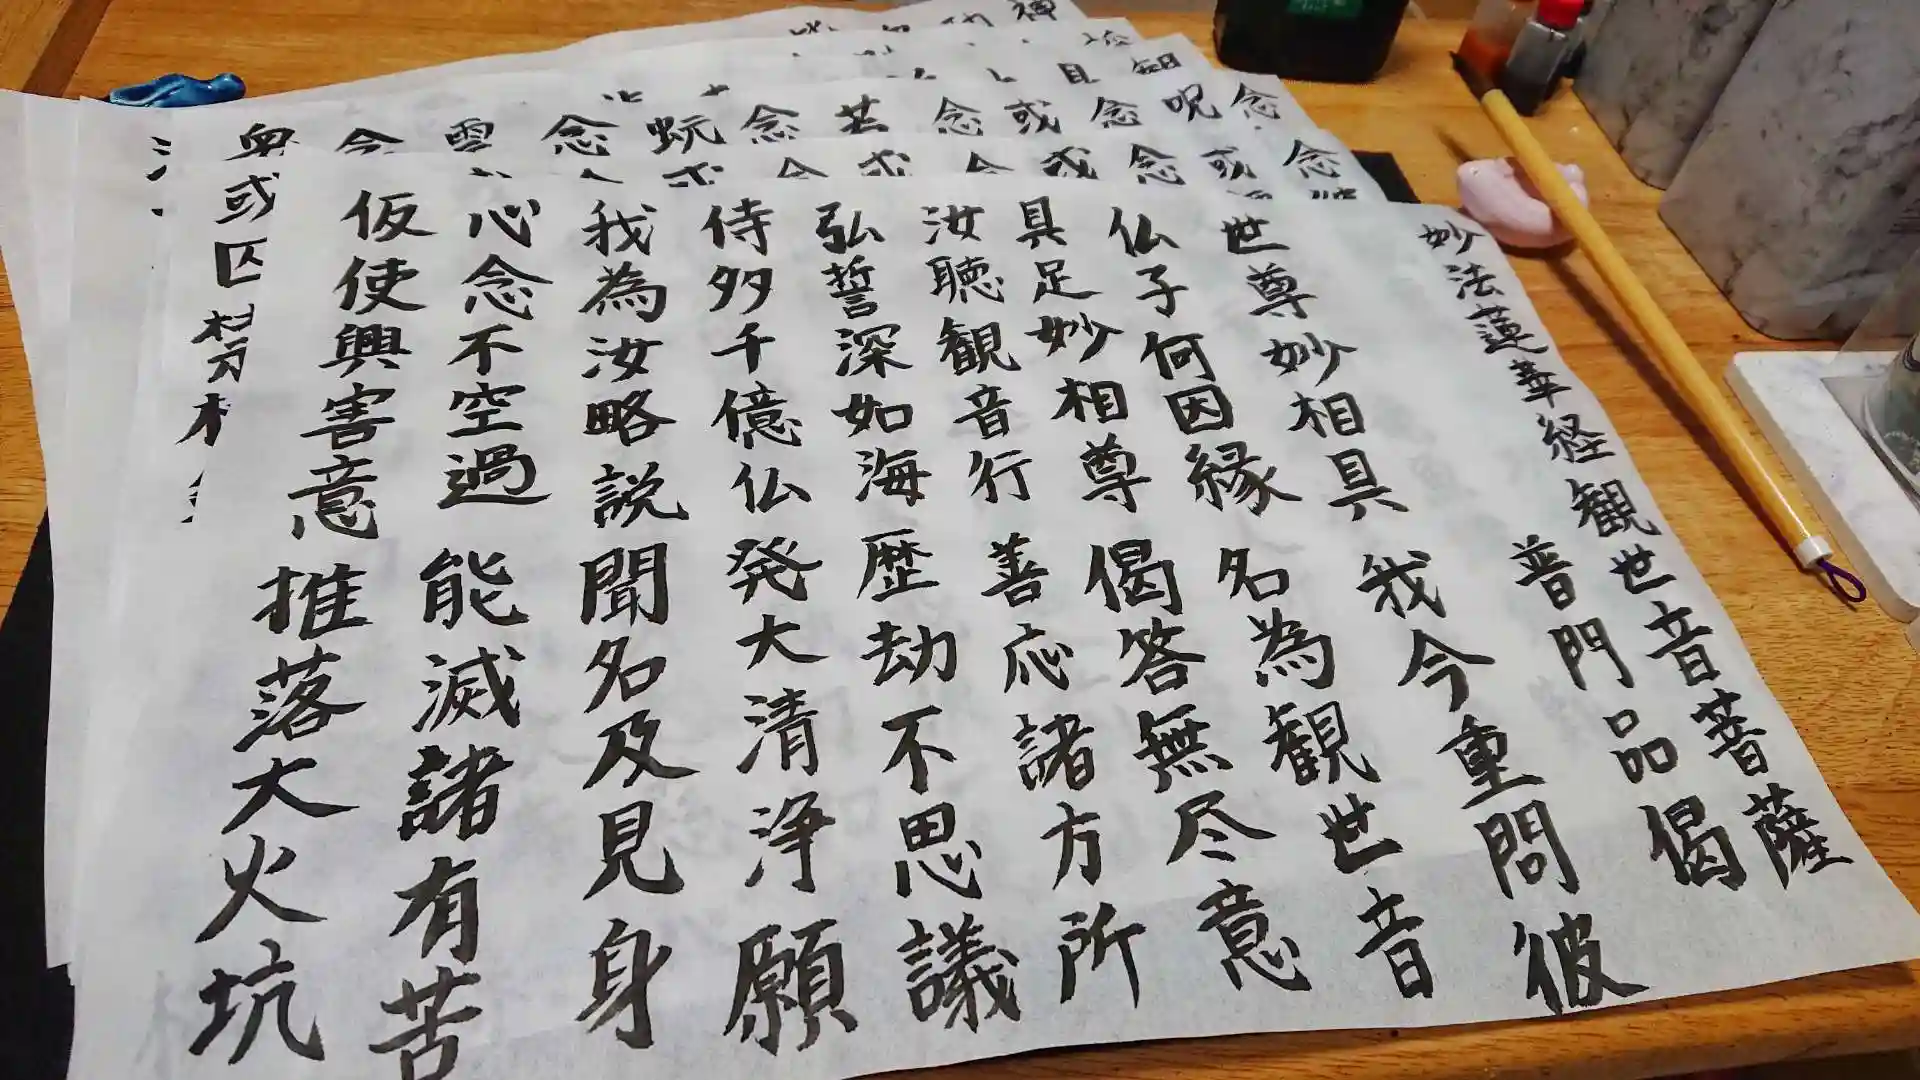 妙法蓮華経観世音菩薩
普門品偈
世尊妙相具 我今重問彼
仏子何因縁 名為観世音
具足妙相尊 偈答無尽意
汝聴観音行 善応諸方所
弘誓深如海 歴劫不思議
侍多千億仏 発大清浄願
我為汝略説 聞名及見身
心念不空過 能滅諸有苦
仮使興害意 推落大火坑
念
或
念
或
念
呪
念
或
念
若
念
蚖
念
雲
念
或囚禁